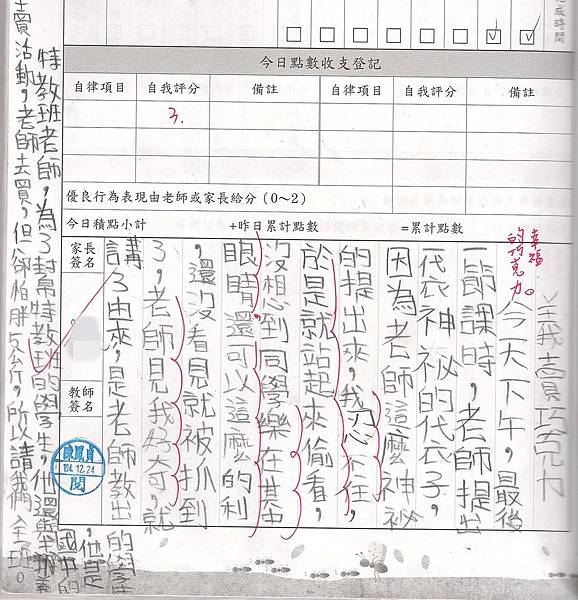 成時間
今日點數收支登記
自律項目 自我評分 備註 自律項目 自我評分 備註
3.
優良行為表現由老師或家長給分（0～2）
今日積點小計 +昨日累計點數 =累計點數
家長簽名
教師簽名
104.12.24
閱
幸福
的巧克力
義賣巧克力
今天下午，最後
一節課時，老師提出
一袋神祕的袋子，
因為老師這麼神祕
的提出來，我忍不住，
於是就站起來偷看，
沒想到同學樂在
眼睛還可以這麼的利
，還沒看見就被抓到
了，老師見我好奇，就
講了由來，是老師教出
的學生
，他是
國中的
特教班老師，為了幫特教班的學生，他還舉辦義
賣活動，老師去買，但卻怕胖，所以請我們全班。